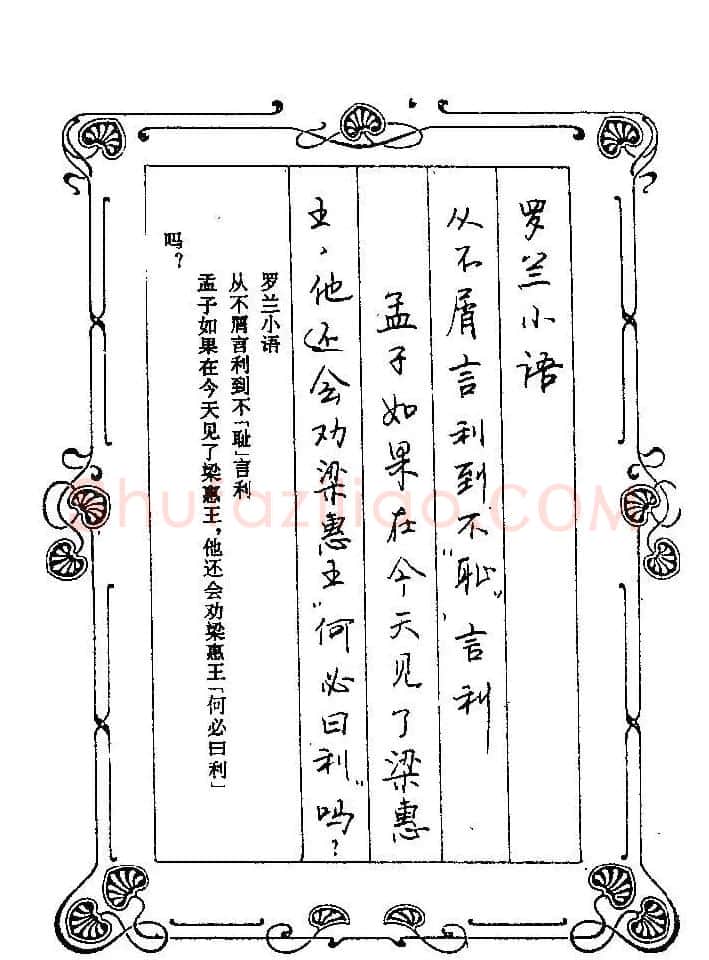 罗兰小语
从不屑言利到不“耻”言利
孟子如果在今天见了梁惠
王，他还会劝梁惠王“何必曰利”吗？
罗兰小语
从不屑言利到不「耻」言利
孟子如果在今天见了梁惠王，他还会劝梁惠王「何必曰利」
吗？
Shufaziliao.COM